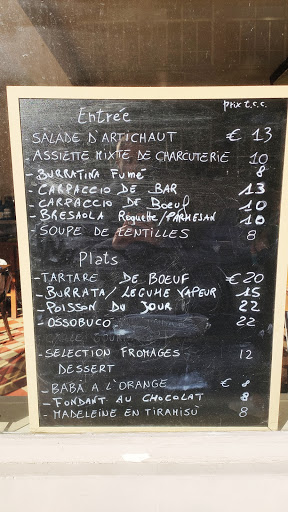 Entrée prix t.c.c.
- SALADE D'ARTICHAUT € 13
- ASSIETTE MIXTE DE CHARCUTERIE 10
- BURRATINA FUMÉ 8
- CARPACCIO DE BAR 13
- CARPACCIO DE BOEUF 10
- BRESAOLA Roquette/PARMESAN 10
- SOUPE DE LENTILLES 8
Plats
- TARTARE DE BOEUF € 20
- BURRATA/LÉGUME VAPEUR 15
- POISSON DU JOUR 22
- OSSOBUCO 22
- SELECTION FROMAGES 12
DESSERT
- BABÀ A L'ORANGE € 8
- FONDANT AU CHOCOLAT 8
- MADELEINE EN TIRAMISÙ 8